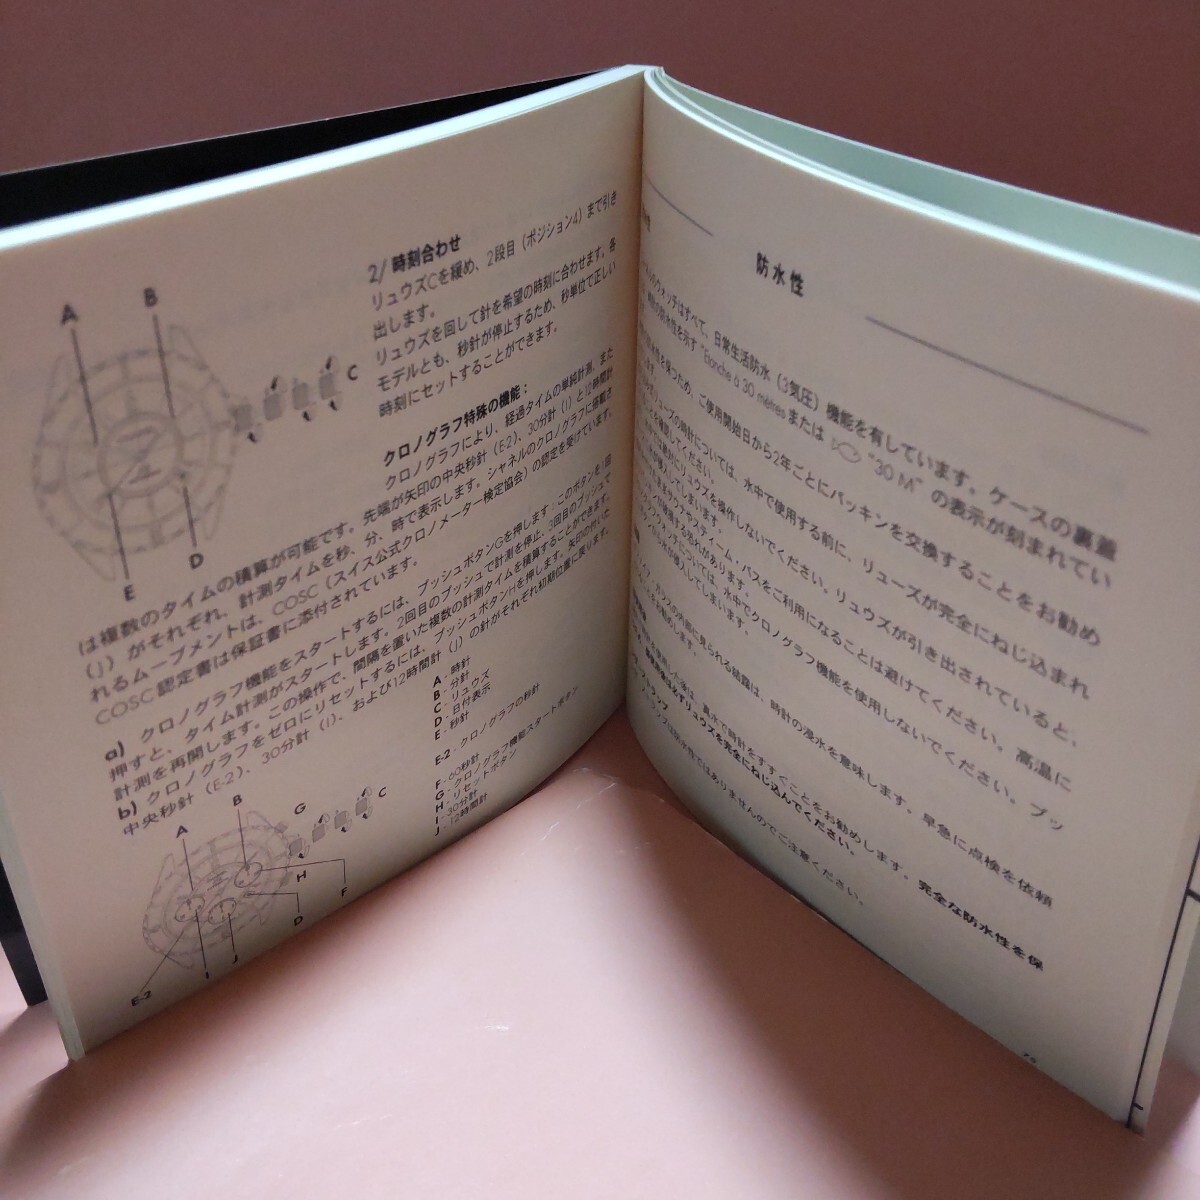 A
B
C
D
E
2/ 時刻合わせ
リュウズCを緩め、2段目（ポジション4）まで引き
出します。
リュウズを回して針を希望の時刻に合わせます。各
モデルとも、秒針が停止するため、秒単位で正しい
時刻にセットすることができます。
クロノグラフ特殊の機能：
クロノグラフにより、経過タイムの単純計測、また
は複数のタイムの積算が可能です。先端が矢印の中央秒針（E-2）、30分計（I）と12時間計
（J）がそれぞれ、計測タイムを秒、分、時で表示します。シャネルのクロノグラフに搭載さ
れるムーブメントは、COSC（スイス公式クロノメーター検定協会）の認定を受けています。
COSC認定書は保証書に添付されています。
a) クロノグラフ機能をスタートするには、プッシュボタンGを押します：このボタンを1回
押すと、タイム計測がスタートします。2回目のプッシュで計測を停止、3回目のプッシュで
計測を再開します。この操作で、間隔を置いた複数の計測タイムを積算することができます。
b) クロノグラフをゼロにリセットするには、プッシュボタンHを押します。矢印の付いた
中央秒針（E-2）、30分計（I）、および12時間計（J）の針がそれぞれ初期位置に戻ります。
A - 時針
B - 分針
C - リュウズ
D - 日付表示
E - 秒針
E-2 - クロノグラフの秒針
F - 60秒計
G - クロノグラフ機能スタートボタン
H - リセットボタン
I - 30分計
J - 12時間計
A
B
G
C
H
F
D
J
I
E-2
防水性
ウォッチはすべて、日常生活防水（3気圧）機能を有しています。ケースの裏蓋
防水性を示す "Etanche à 30 mètres または "30 M" の表示が刻まれてい
性を保つため、ご使用開始日から2年ごとにパッキンを交換することをお勧め
リューズの時計については、水中で使用する前に、リューズが完全にねじ込まれ
を確認してください。
では絶対にリュウズを操作しないでください。リュウズが引き出されていると、
が浸入してしまいます。
サウナやスティーム・バスをご利用になることは避けてください。高温に
恐れがあります。
ウォッチについては、水中でクロノグラフ機能を使用しないでください。プッ
が浸入してしまいます。
ガラスの内部に見られる結露は、時計の浸水を意味します。早急に点検を依頼
をお勧めします。
使用した後は、真水で時計をすすぐことをお勧めします。完全な防水性を保
必ずリュウズを完全にねじ込んでください。
防水性ではありませんのでご注意ください。